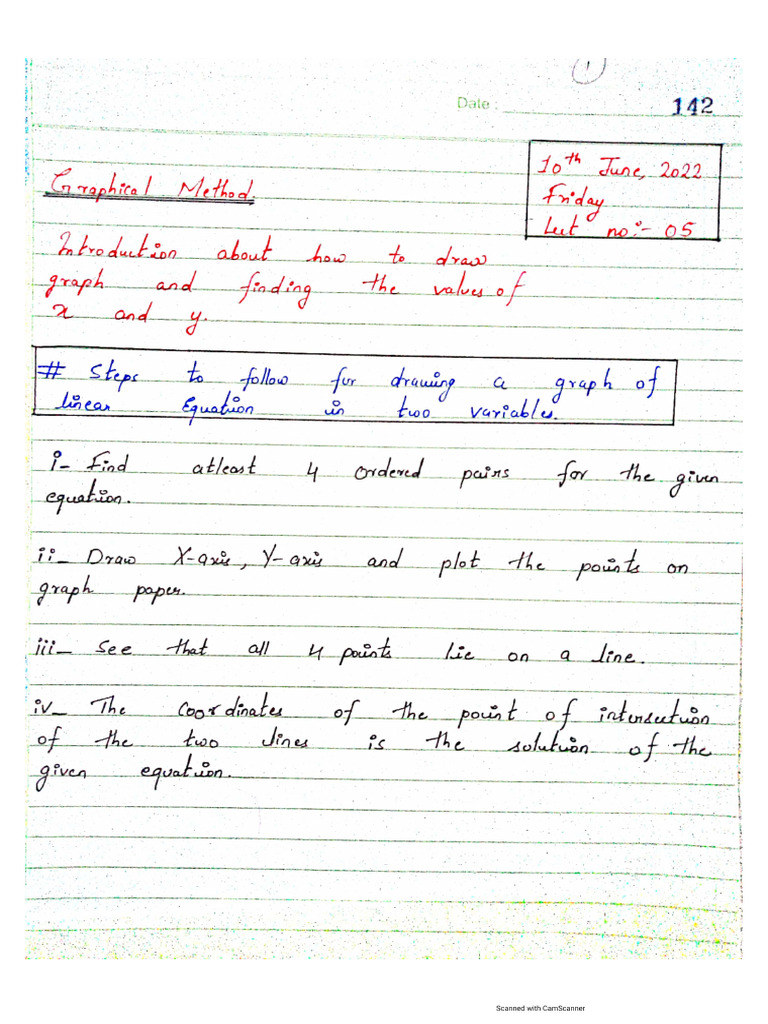 1
Date :
142
10th June, 2022
Friday
Lect no:- 05
Graphical Method.
Introduction about how to draw
graph and finding the values of
x and y.
# Steps to follow for drawing a graph of
linear Equation in two variables.
i- Find atleast 4 ordered pairs for the given
equation.
ii- Draw X-axis, Y-axis and plot the points on
graph paper.
iii- See that all 4 points lie on a line.
iv- The coordinates of the point of intersection
of the two lines is the solution of the
given equation.
Scanned with CamScanner